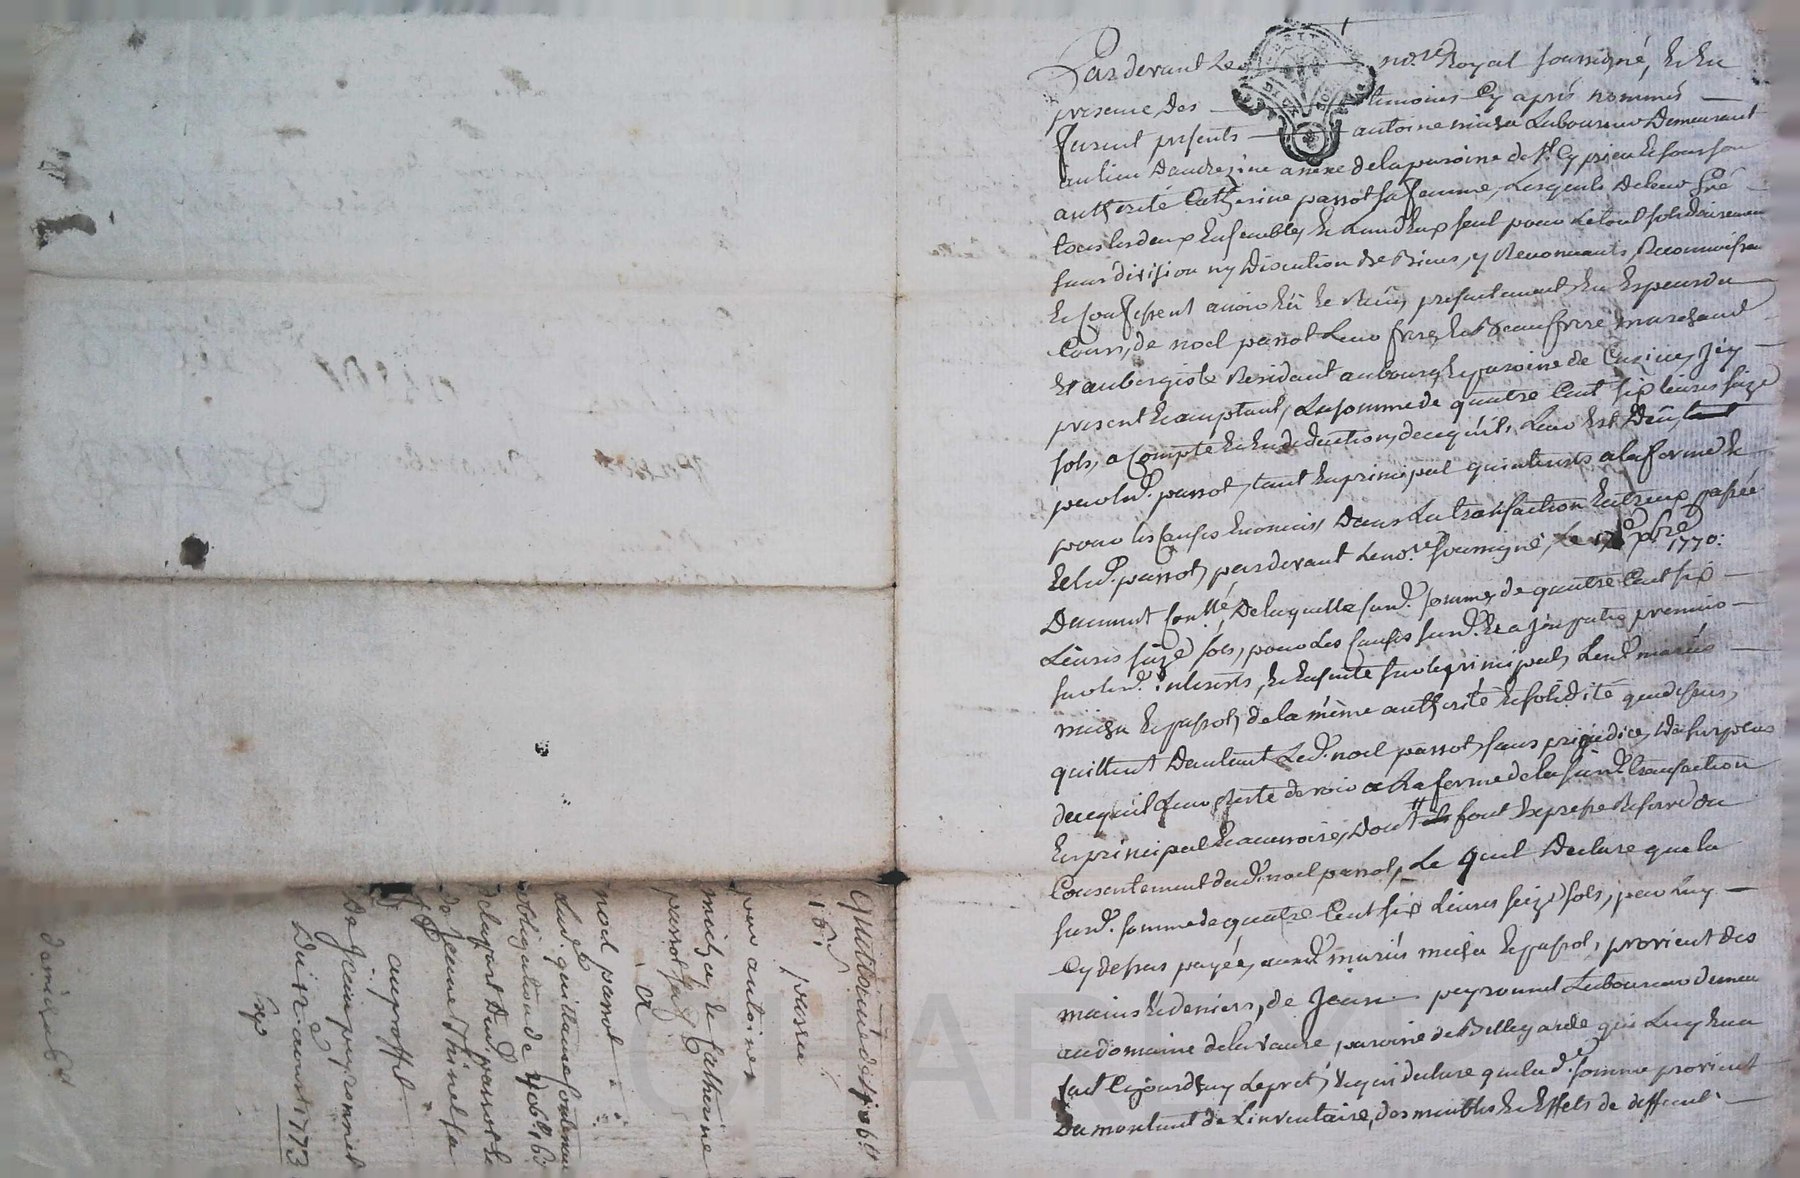 Pardevant Le nore. Royal soussigné, Et En
presence Des temoins Cy aprés nommés
furent presents antoine micha Laboureur Demeurant
au lieu Daudrezine anexe de la paroisse de St. Cyprien Et sous son
authorité Catherine parrot sa femme, Lesquels De leur gré
tous les deux Ensemble, Et Lun d'Eux seul pour Le tout solidairement
sans division ny Discution De Biens, y Renonceants, Reconnoissent
Et Confessent avoir Eü Et Reçu, presentement En Especes du
Cours, de noel parrot Leur frere, Et Beaufrere marchand
Et aubergiste Residant au bourg Et paroisse de
present Et acceptant, La somme de quatre Cent six Livres seize
sols, a Compte Et En deduction, de ce qu'il, Leur Est Deü,
par led. parrot, tant En principal qu'interets a la forme Et
pour les Causes Enoncés, Dans La transaction Entreux passée
Et led. parrot, pardevant Le nore. soussigné, Le 17e. 1770:
Duement Conllé, De laquelle susd. somme, de quatre Cent six
Livres seize sols, pour Les Causes susd. premier
sur les d. interets, Et Ensuite sur le principal, Lesd. mariés
micha Et parrot, de la même authorité Et solidité que dessus,
quittent D'autant Led. noel parrot, sans prejudice, Du surplus
de ce qu'il Leur Reste devoir a La forme de la susd. transaction
En principal Et accessoires, Dont ils font Expresse Reserve du
Consentement dud. noel parrot, Le quel Declare que la
susd. somme de quatre Cent six Livres seize sols, par Luy
Cy dessus payée, auxd. mariés micha Et parrot, provient des
mains Et deniers, de Jean peyronnet Laboureur demeu
au domaine de la vaure, paroisse de Bellegarde qui Luy En a
fait Cejourd'huy Le pret, Et qui declare que la d. somme provient
Du montant de L'inventaire, des meubles Et Effets de deffunt
quittance de 406ll
16s.
passée
par antoine
micha, Et Catherine
parrot sa fe
a
noel parrot
Lad. quittance Contenant
obligation de 406ll 16s
de la part Dud. parrot Et
de Jeanne Thinel sa
fe
au proffit
De Jean peyronnet
Du 12 aoust 1773
CHARLYE